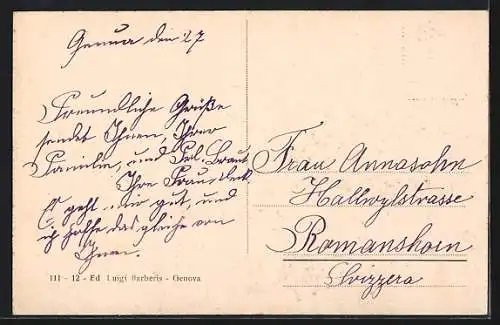 Genua den 27
Freundliche Grüße
sendet Ihnen, Ihrer
Familie, und Frl. Braut
Ihre Frau
Es geht mir gut, und
ich hoffe das gleiche von
Ihnen.
III - 12 - Ed Luigi Barberis - Genova
Frau Annasohn
Hallwylstrasse
Romanshorn
Svizzera